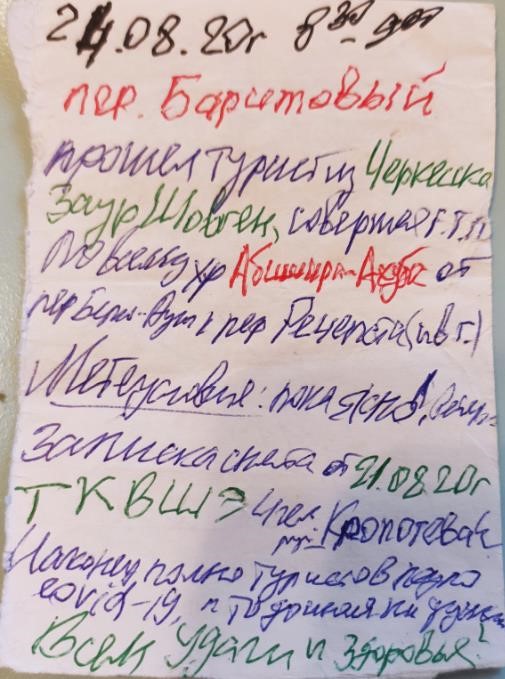 24.08.20г 8 30
пер. Баритовый
прошел турист из Черкесска
Заур Шовген, совершая г.т.п
по всему хр Абишира-Ахуба от
пер к пер Речепста (и в г.)
Метеусловия: пока ясно!,
Записка снята от 21.08.20г
ТКВШЭ 4 чел
рук. Кропотова
Наконец полно туристов
covid-19, а то
Всем удачи и здоровья!